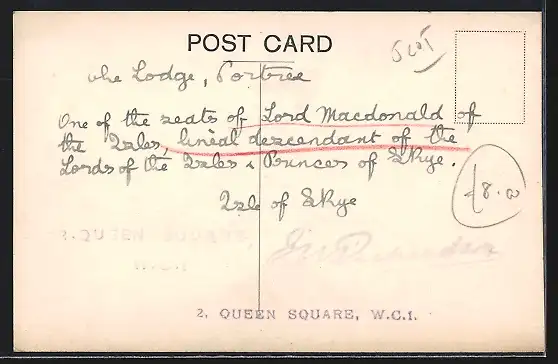 POST CARD
Scot
The Lodge, Portree
One of the seats of Lord Macdonald of
the Isles, lineal descendant of the
Lords of the Isles & Princes of Skye.
£8.00
Isle of Skye
2, QUEEN SQUARE, W.C.1.